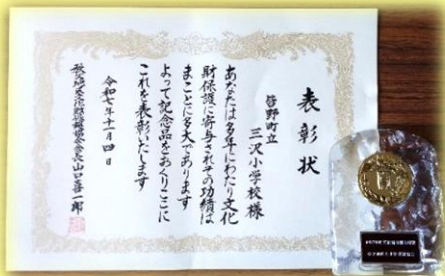 表彰状
皆野町立
三沢小学校様
あなたは多年にわたり文化
財保護に寄与されその功績は
まことに多大であります
よって記念品をおくりことに
これを表彰いたします
令和七年十一月四日
山口喜一郎